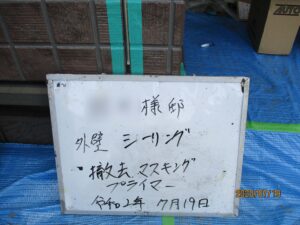 様邸
外壁 シーリング
・撤去、マスキング
プライマー
令和2年 7月19日